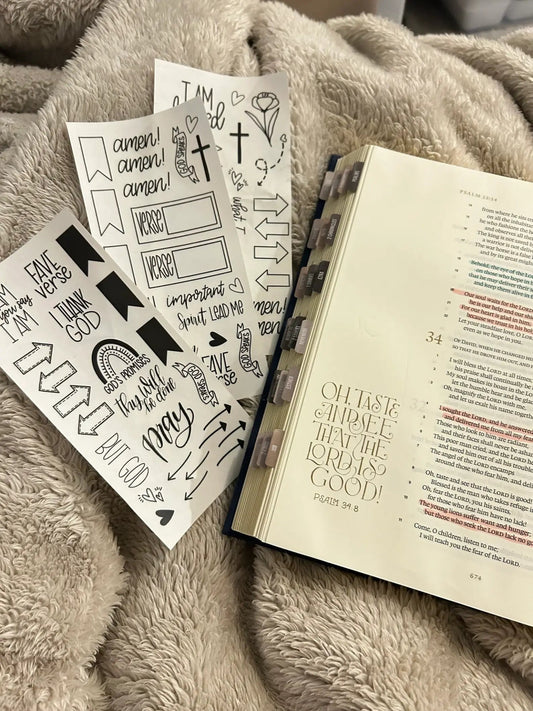 I AM
amen!
amen!
amen!
GOD SPEAKS
VERSE
VERSE
important
Spirit LEAD ME
FAVE
FAVE
verse
I THANK
GOD
I AM
GOD'S PROMISES
thy will
be done
BUT GOD
PSALM
OH, TASTE
AND SEE
THAT THE
LORD IS
GOOD!
PSALM 34:8
from where he sits en
on all the inhabitan
he who fashions the he
and observes all the
The king is not saved b
a warrior is not deliver
The war horse is a fals
and by its great migh
Behold, the eye of the L
on those who hope in
that he may deliver their s
and keep them alive in
Our soul waits for the LORD
he is our help and our sh
For our heart is glad in him,
because we trust in his hol
Let your steadfast love, O LORD
even as we hope in you.
34
OF DAVID, WHEN HE CHANGED H
SO THAT HE DROVE HIM OUT, AND
I will bless the LORD at all times;
his praise shall continually be
My soul makes its boast in the LORD
let the humble hear and be glad
Oh, magnify the LORD with me,
and let us exalt his name together
I sought the LORD, and he answered
and delivered me from all my fears
Those who look to him are radiant,
and their faces shall never be asha
This poor man cried, and the LORD h
and saved him out of all his troubl
The angel of the LORD encamps
around those who fear him, and del
Oh, taste and see that the LORD is good!
Blessed is the man who takes refuge i
Oh, fear the LORD, you his saints,
for those who fear him have no lack!
The young lions suffer want and hunger
but those who seek the LORD lack no g
Come, O children, listen to me;
I will teach you the fear of the LORD.
674